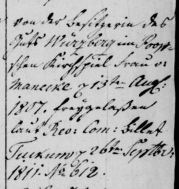 von der Besitzerin des
Guts Würzberg im
Kirchspiel Frau v
Manecke d 13ten Aug:
1807. beygelaßen
laut Rev: Com: Billet
Tuckum d 26ten Septbr:
1811. No 612.